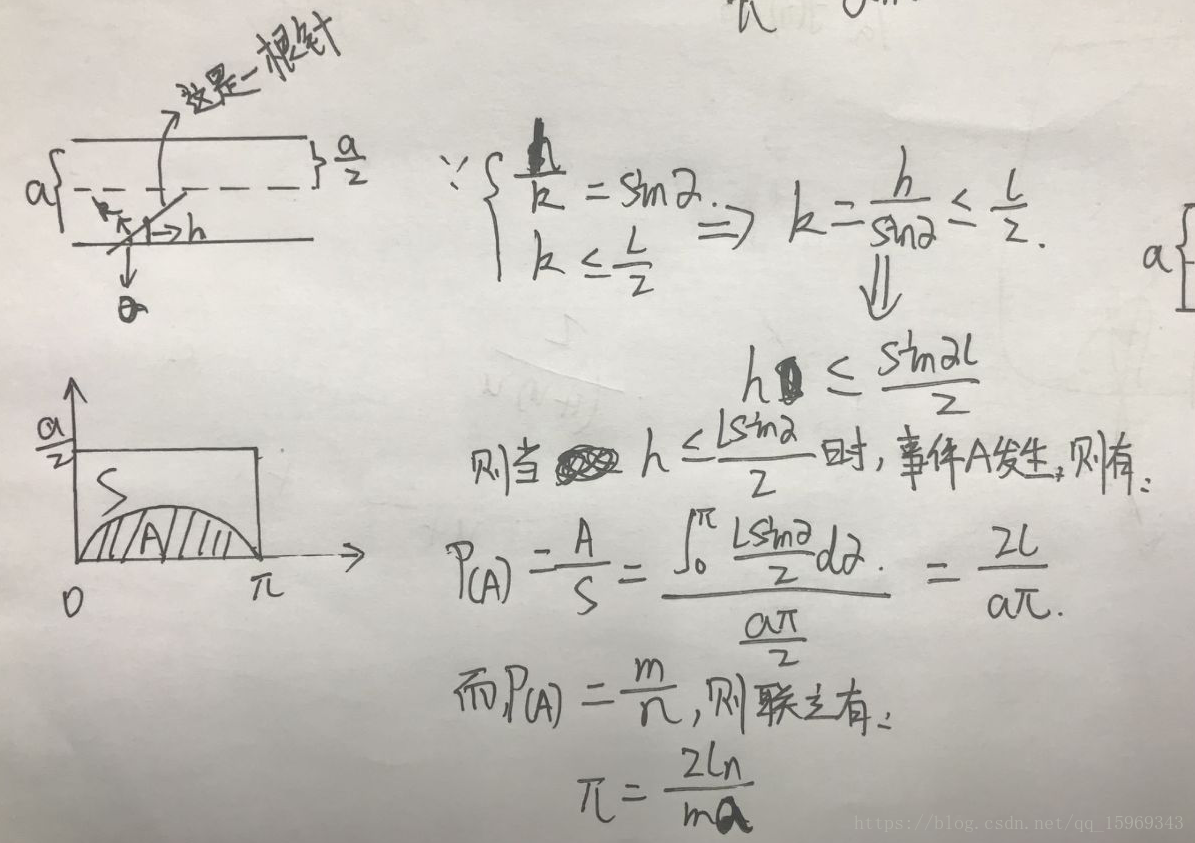 这是一根针
a
a/2
k
h
α
∵ { h/k = sinα.
k ≤ L/2
⇒ k = h/sinα ≤ L/2.
⇓
a
h ≤ sinαL/2
则当 h ≤ Lsinα/2 时, 事件A发生, 则有:
P(A) = A/S = ∫₀^π Lsinα/2 dα. / aπ/2 = 2L/aπ.
而, P(A) = m/n, 则联立有:
π = 2Ln/ma
a/2
S
A
0
π
https://blog.csdn.net/qq_15969343